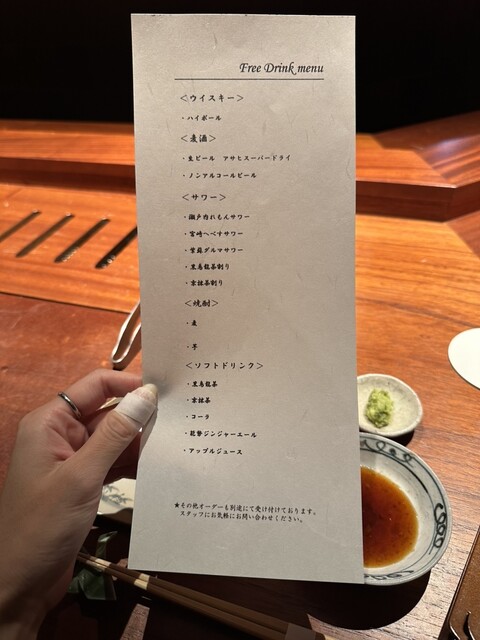 Free Drink menu
＜ウイスキー＞
・ハイボール
＜麦酒＞
・生ビール　アサヒスーパードライ
・ノンアルコールビール
＜サワー＞
・瀬戸内れもんサワー
・宮崎へべすサワー
・紫蘇ダルマサワー
・黒烏龍茶割り
・京緑茶割り
＜焼酎＞
・麦
・芋
＜ソフトドリンク＞
・黒烏龍茶
・京緑茶
・コーラ
・能勢ジンジャーエール
・アップルジュース
★その他オーダーも別途にて受け付けております。
スタッフにお気軽にお問い合わせください。